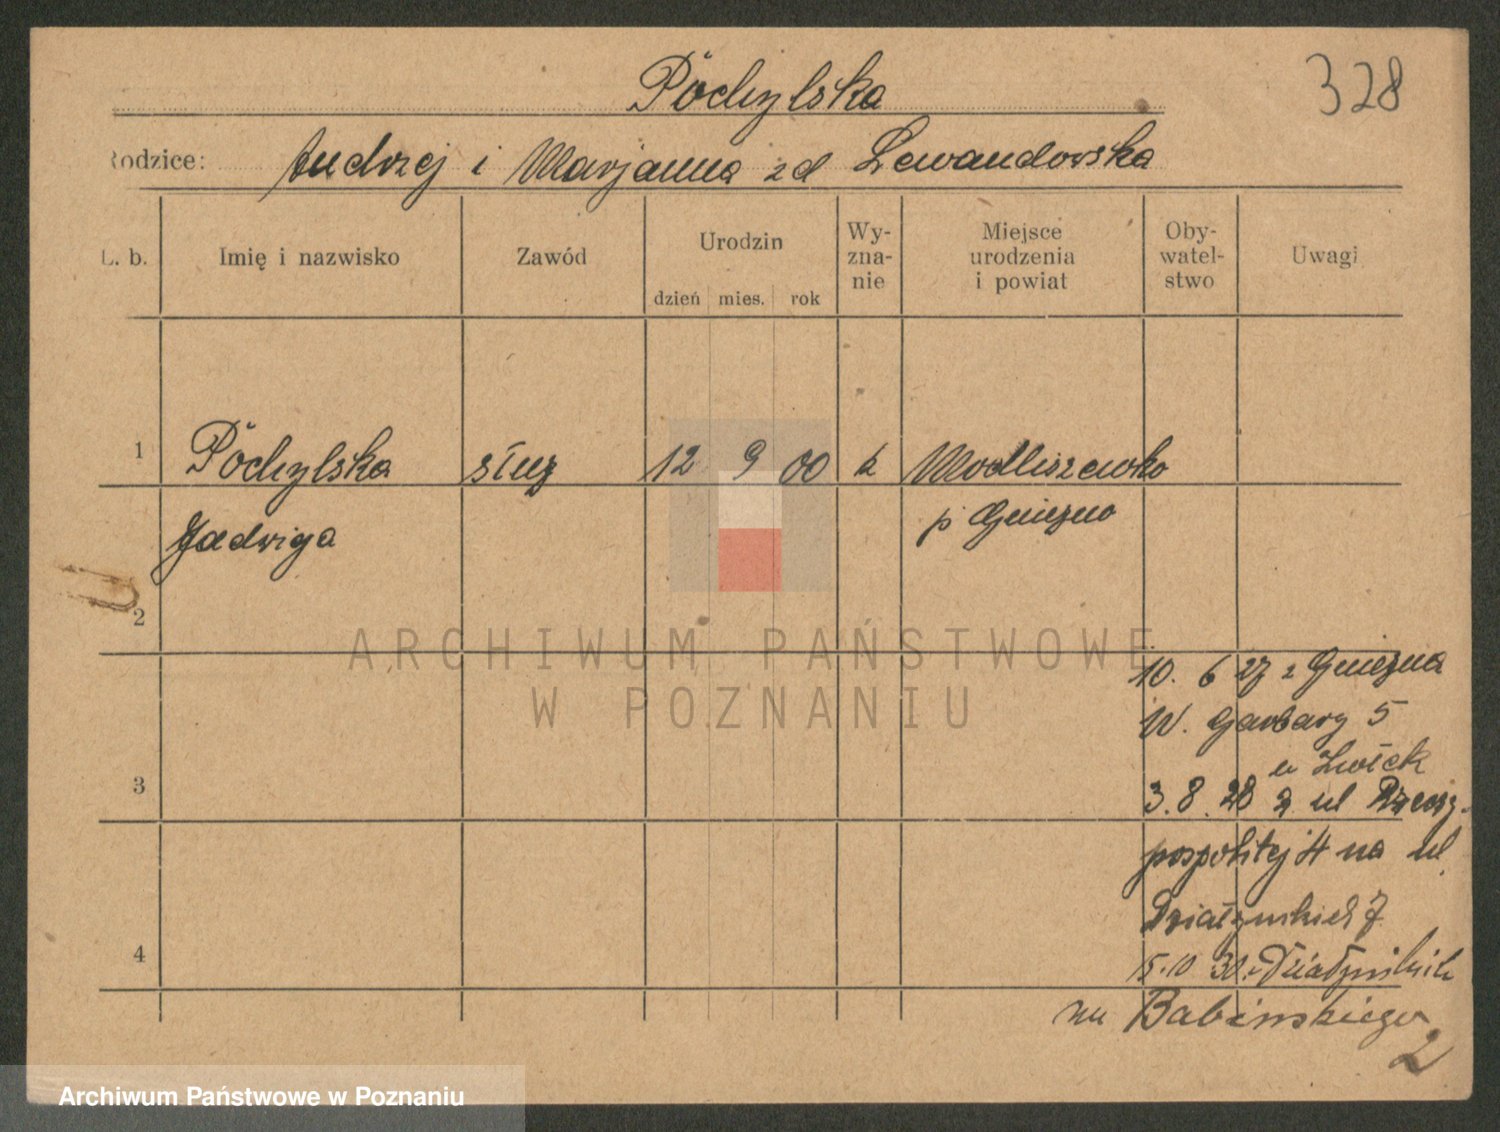 Pöchylska
328
Rodzice: Andrzej i Marjanna zd Lewandowska
L. b.
Imię i nazwisko
Zawód
Urodzin
dzień mies. rok
Wy-
zna-
nie
Miejsce
urodzenia
i powiat
Oby-
watel-
stwo
Uwagi
1 Pöchylska służ 12 9 00 k Modliszewko
Jadwiga p Gniezno
2
10. 6 27 z Gniezna
W. Garbary 5
u
3
3. 8. 28 z ul Rzeczy-
pospolitej 4 na ul
Działyńskich 7
4
15.10 30 z Działyńskich
na Babińskiego
2
ARCHIWUM PAŃSTWOWE
W POZNANIU
Archiwum Państwowe w Poznaniu